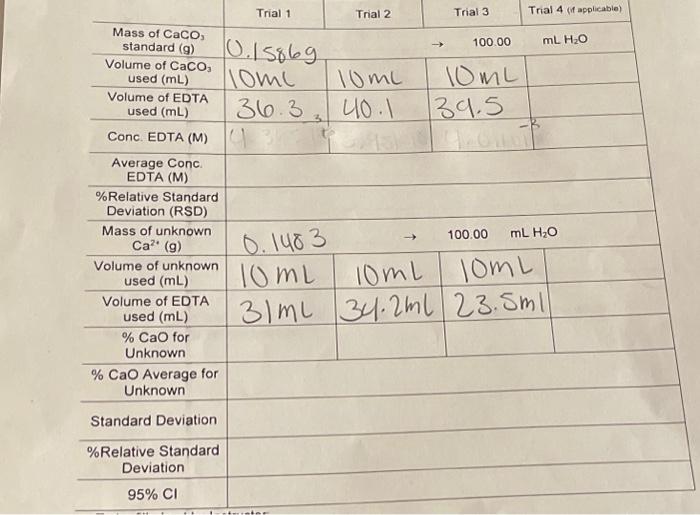 Trial 1 Trial 2 Trial 3 Trial 4 (if applicable)
Mass of CaCO₃
standard (g) 0.1586g → 100.00 mL H₂O
Volume of CaCO₃
used (mL) 10mL 10mL 10mL
Volume of EDTA
used (mL) 36.3 40.1 39.5
Conc. EDTA (M)
Average Conc.
EDTA (M)
%Relative Standard
Deviation (RSD)
Mass of unknown
Ca²⁺ (g) 0.1483 → 100.00 mL H₂O
Volume of unknown
used (mL) 10mL 10mL 10mL
Volume of EDTA
used (mL) 31mL 34.2mL 23.5ml
% CaO for
Unknown
% CaO Average for
Unknown
Standard Deviation
%Relative Standard
Deviation
95% CI